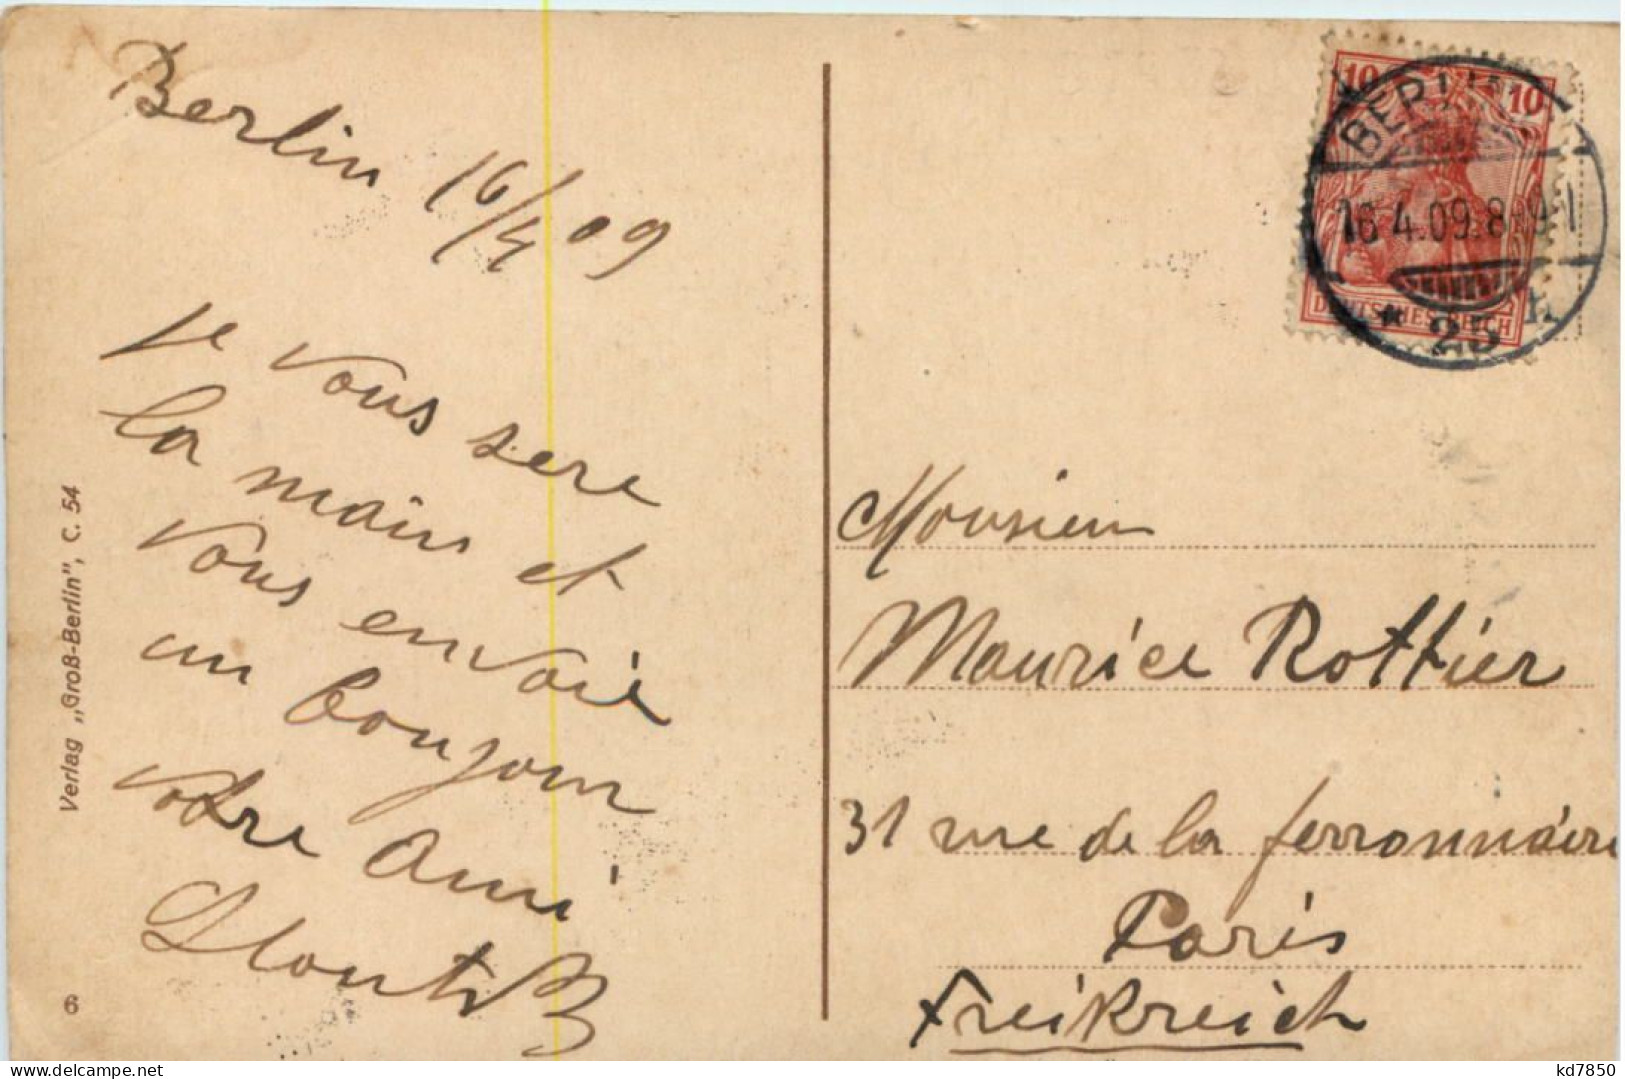 Berlin 16/4 09
Je vous sere
la main et
vous envoie
un bonjour
votre ami
Verlag „Groß-Berlin", C. 54
6
10 10
DEUTSCHES REICH
BERLIN
16.4.09.8-9
* 25
Monsieur
Maurice Rottier
31 rue de la ferronnaire
Paris
Freikreich
kd7850